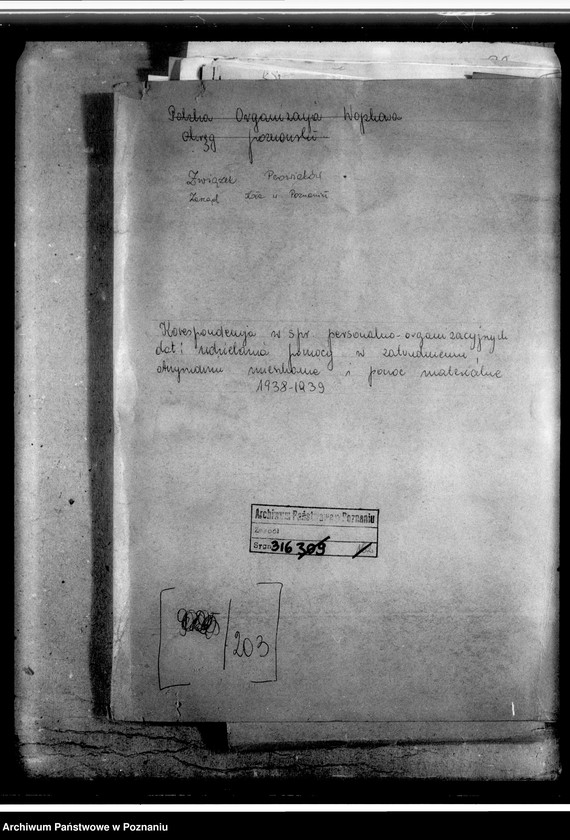 Polska Organizacja Wojskowa
Okręg poznański
Związek Peowiaków
Zarząd Koła w Poznaniu
Korespondencja w spr. personalno-organizacyjnych
dot: udzielenia pomocy w zatrudnieniu,
otrzymaniu mieszkania i pomoc materialna
1938-1939
Archiwum Państwowe w Poznaniu
Zespół
Syg. 316 309
203
Archiwum Państwowe w Poznaniu